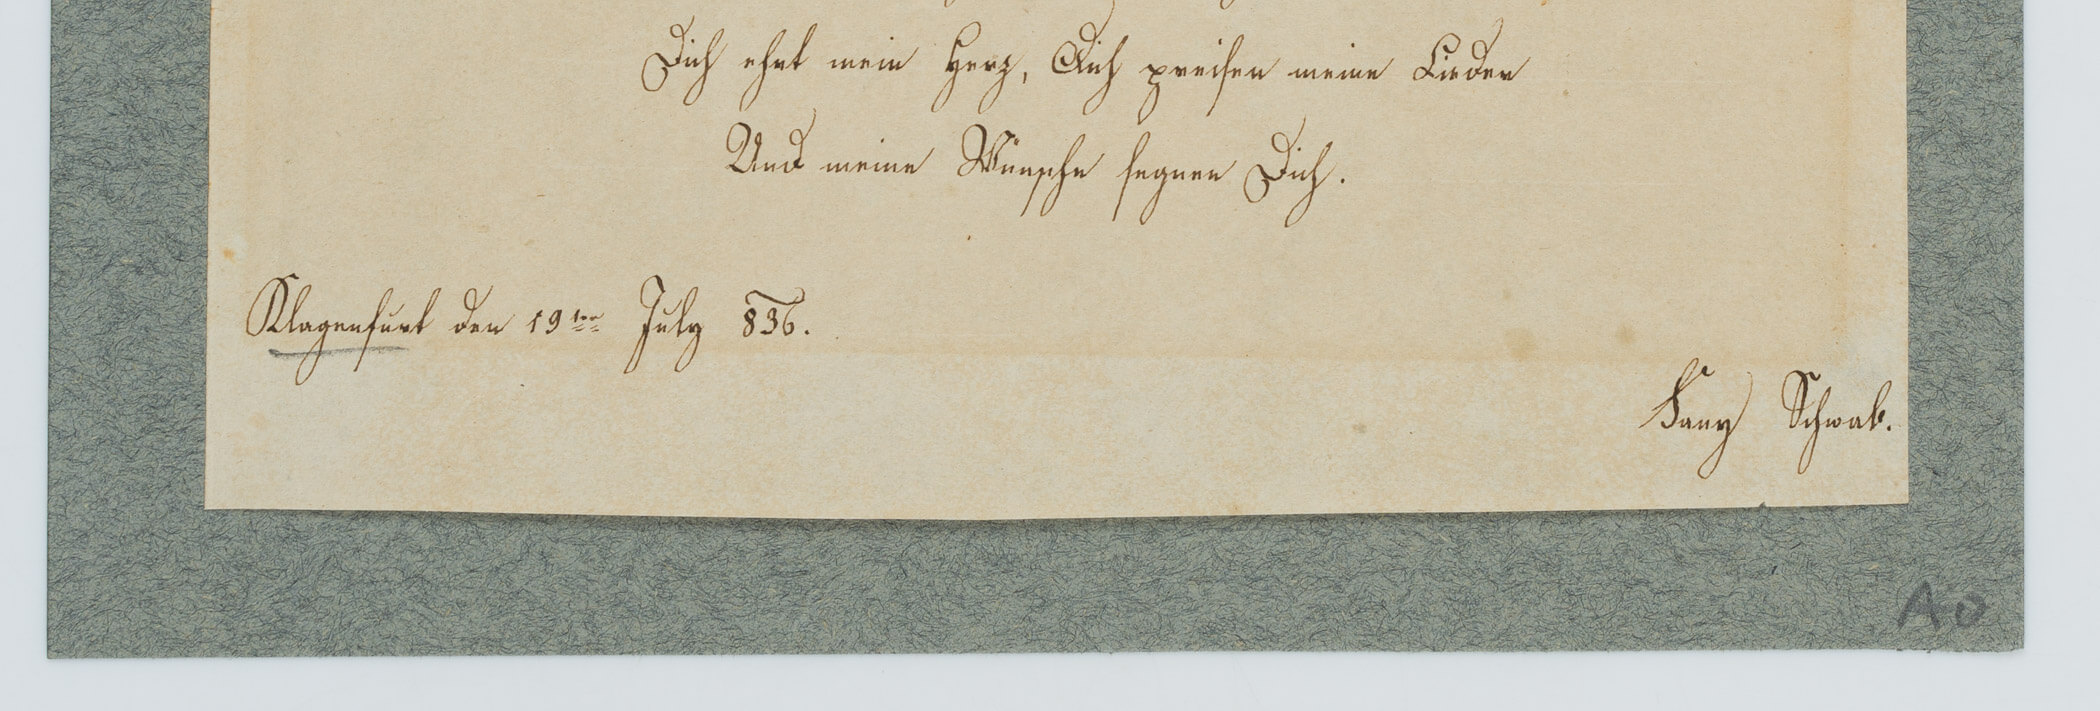 Dich ehrt mein Herz, Dich preisen meine Lieder
Und meine Wünsche segnen Dich.
Klagenfurt den 19ten July 836.
Fany Schwab.
AO